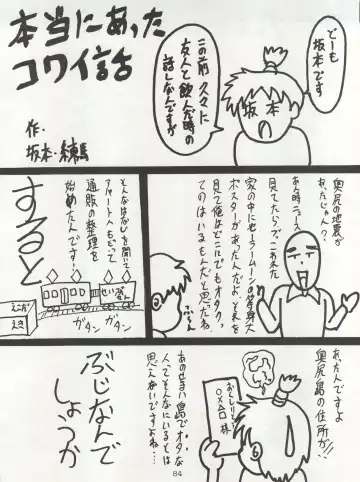 本当にあった
コワイ話
作・
坂本・練馬
どーも
坂本です
坂本
この前 久々に
友人と飲んだ時の
話しなんですが
奥尻の地震が
あったじゃん?
あん時ニュース
見てたらブッこわれた
家の中にセーラームーンの等身大
ポスターがあったんだよ、それを
見て俺はどこにでもオタク
てのはいるもんだと思たね
ふーん
そんなはなしを聞いて
アパートへもどって
通販の整理を
始めたんです!
すると
えこだ
えき
せいぶせん
ガタン
ガタン
あったんですよ
奥尻島の住所が!!
おくしりとう
○×△□様
あのせまい島でオタな
人てそんなにいるとは
思えないですよね…
ぶじなんで
しょうか
84